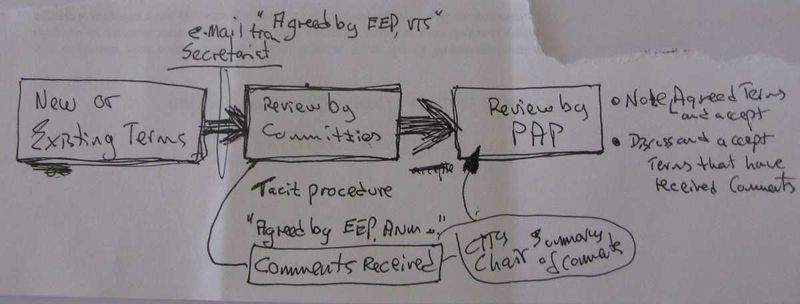 e-mail from "Agreed by EEP, VTS"
Secretariat
New or
Existing Terms
Review by
Committies
Review by
PAP
• Note Agreed Terms
and accept
• Discuss and accept
Terms that have
received Comments
accepte
Tacit procedure
"Agreed by EEP, ANM"
Comments Received
Summary
Chair of Comments